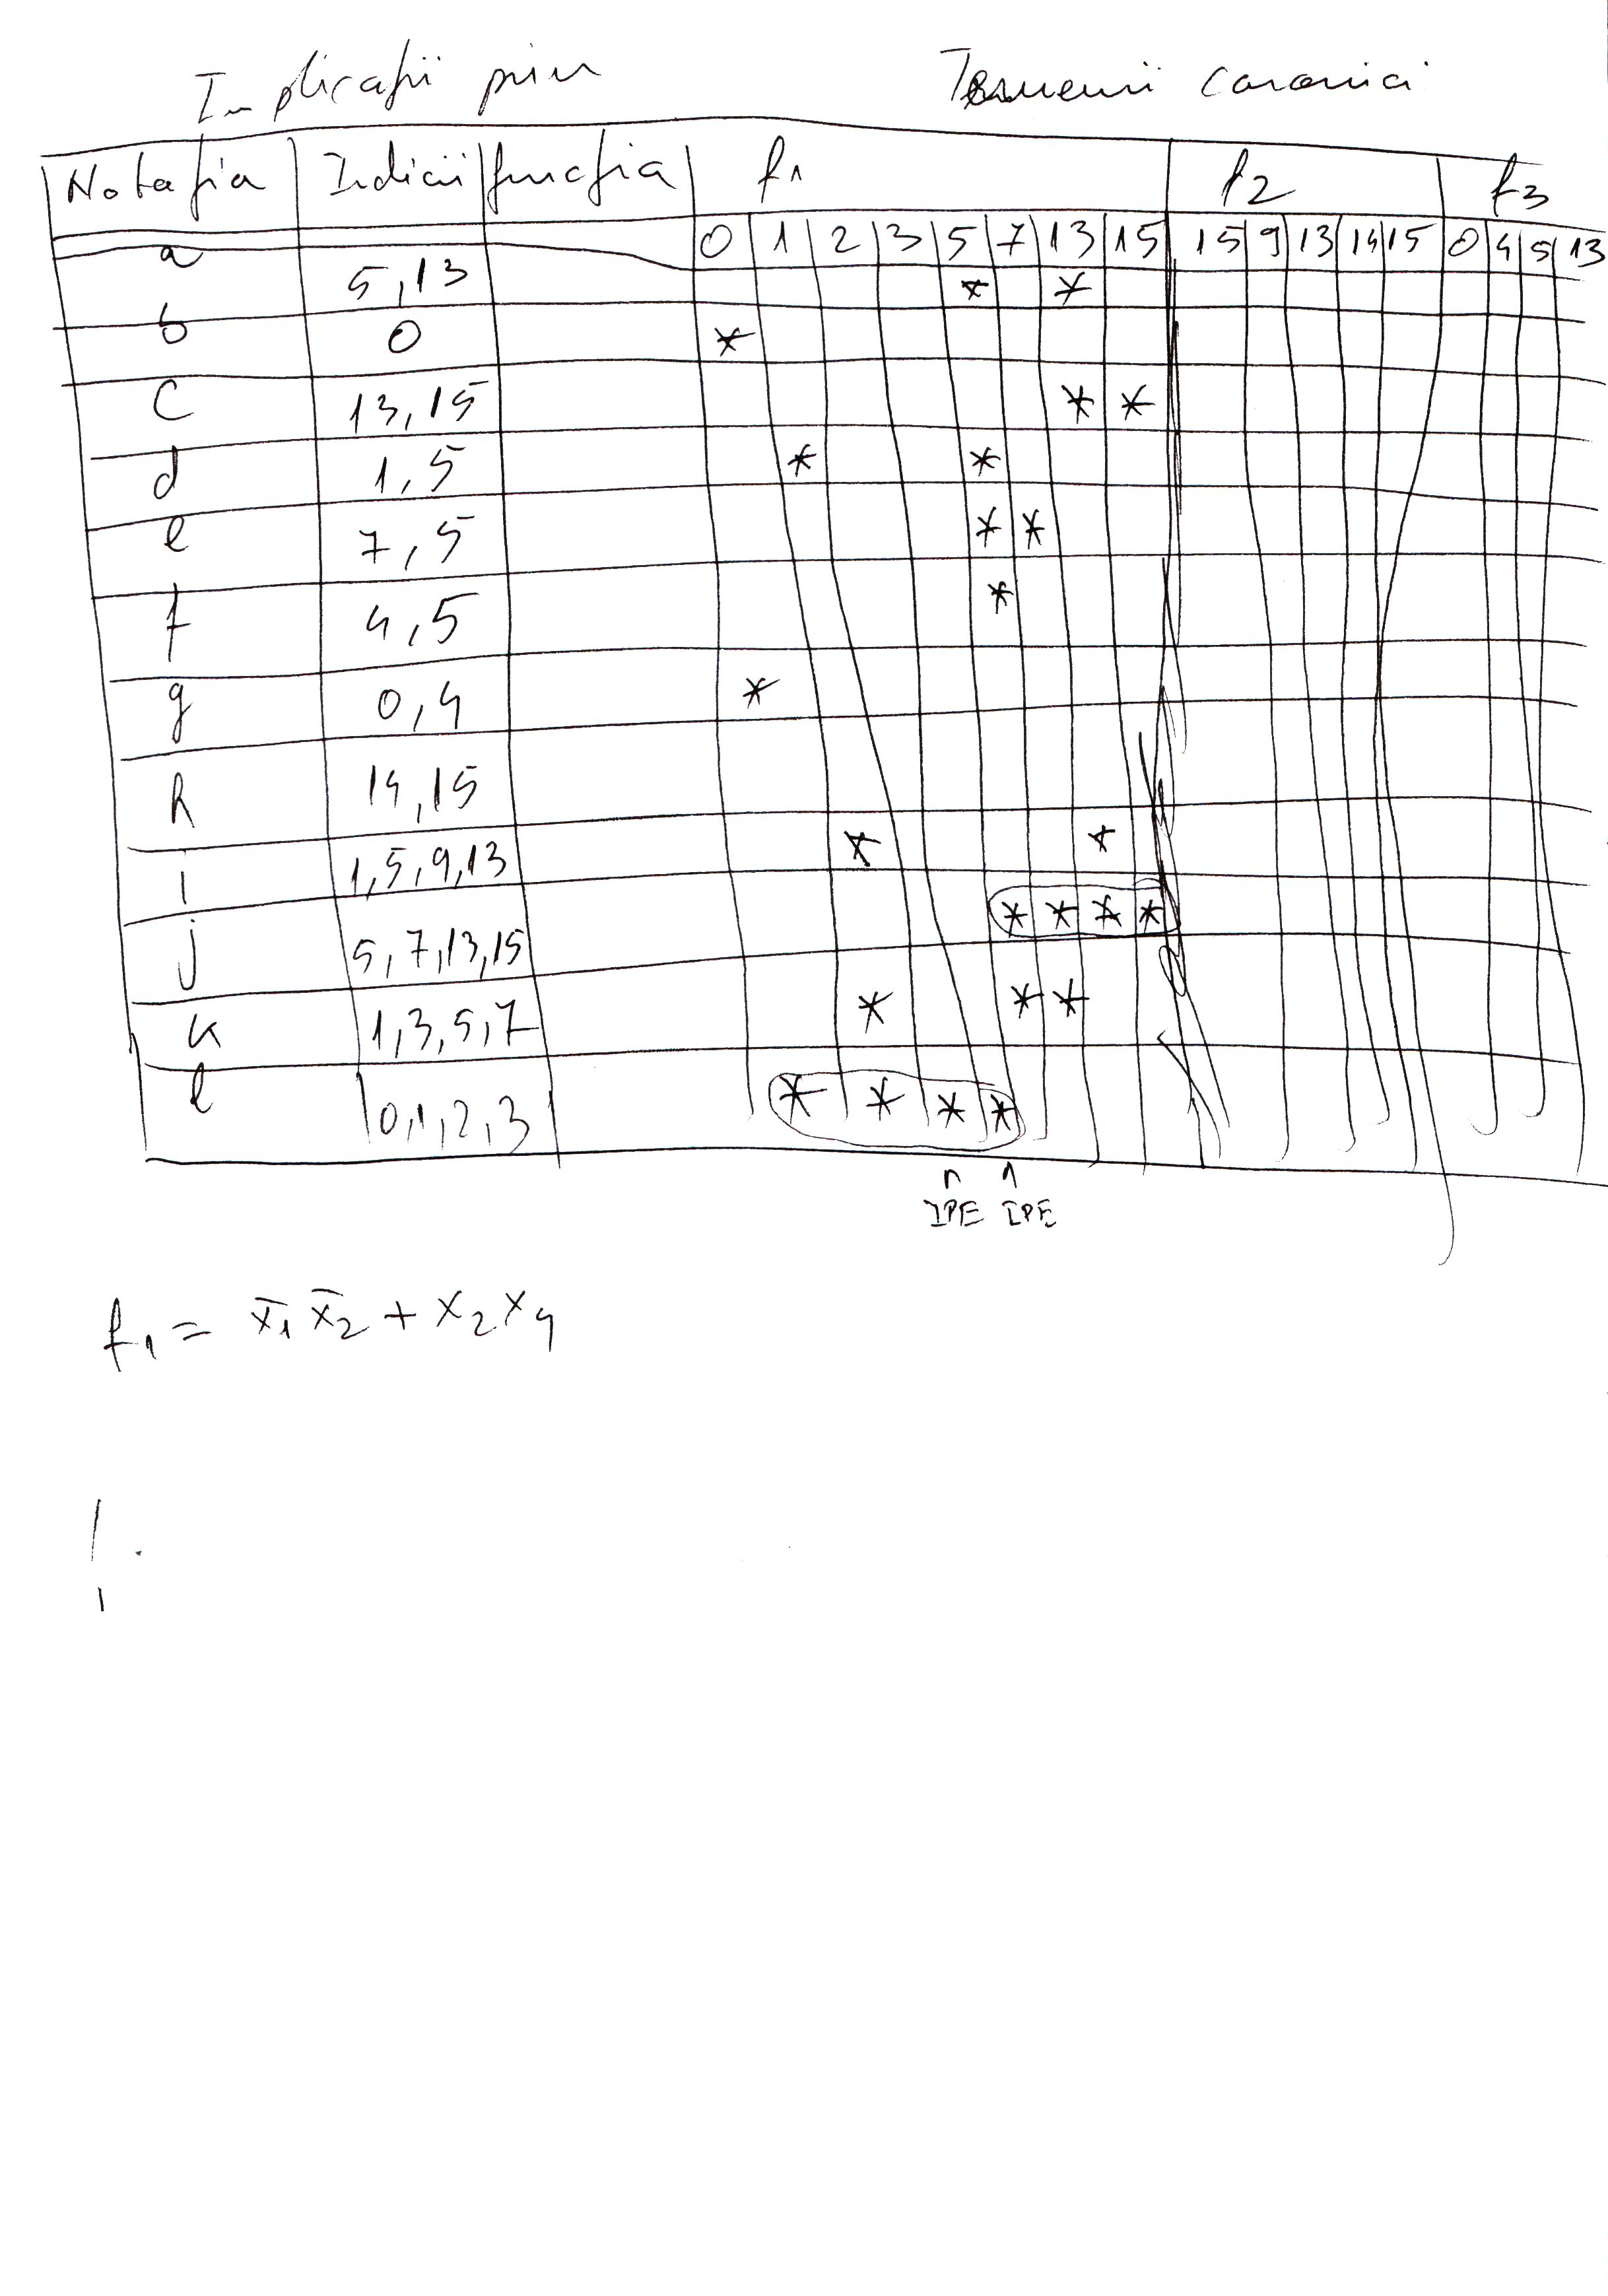 Implicații prim Termenii canonici
Notația Indicii funcția f1 f2 f3
0 1 2 3 5 7 13 15 15 9 13 14 15 0 4 5 13
a 5,13 * *
b 0 *
c 13,15 * *
d 1,5 * *
e 7,5 * *
f 4,5 *
g 0,4 *
h 14,15
i 1,5,9,13 * *
j 5,7,13,15 * * * *
k 1,3,5,7 * * *
l 0,1,2,3 * * * *
IPE IPE
f1 = x̄1 x̄2 + x2 x4